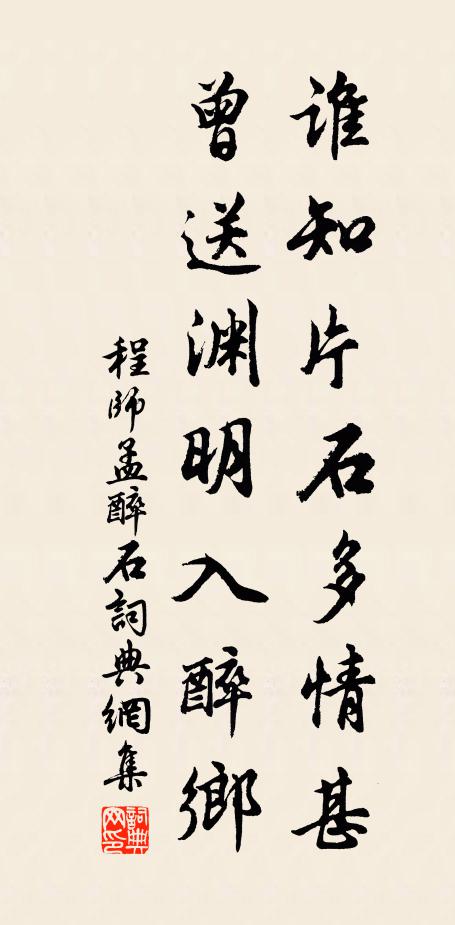 誰知片石多情甚
曾送渊明入醉鄉
程師孟醉石詞典網集
詞典网印